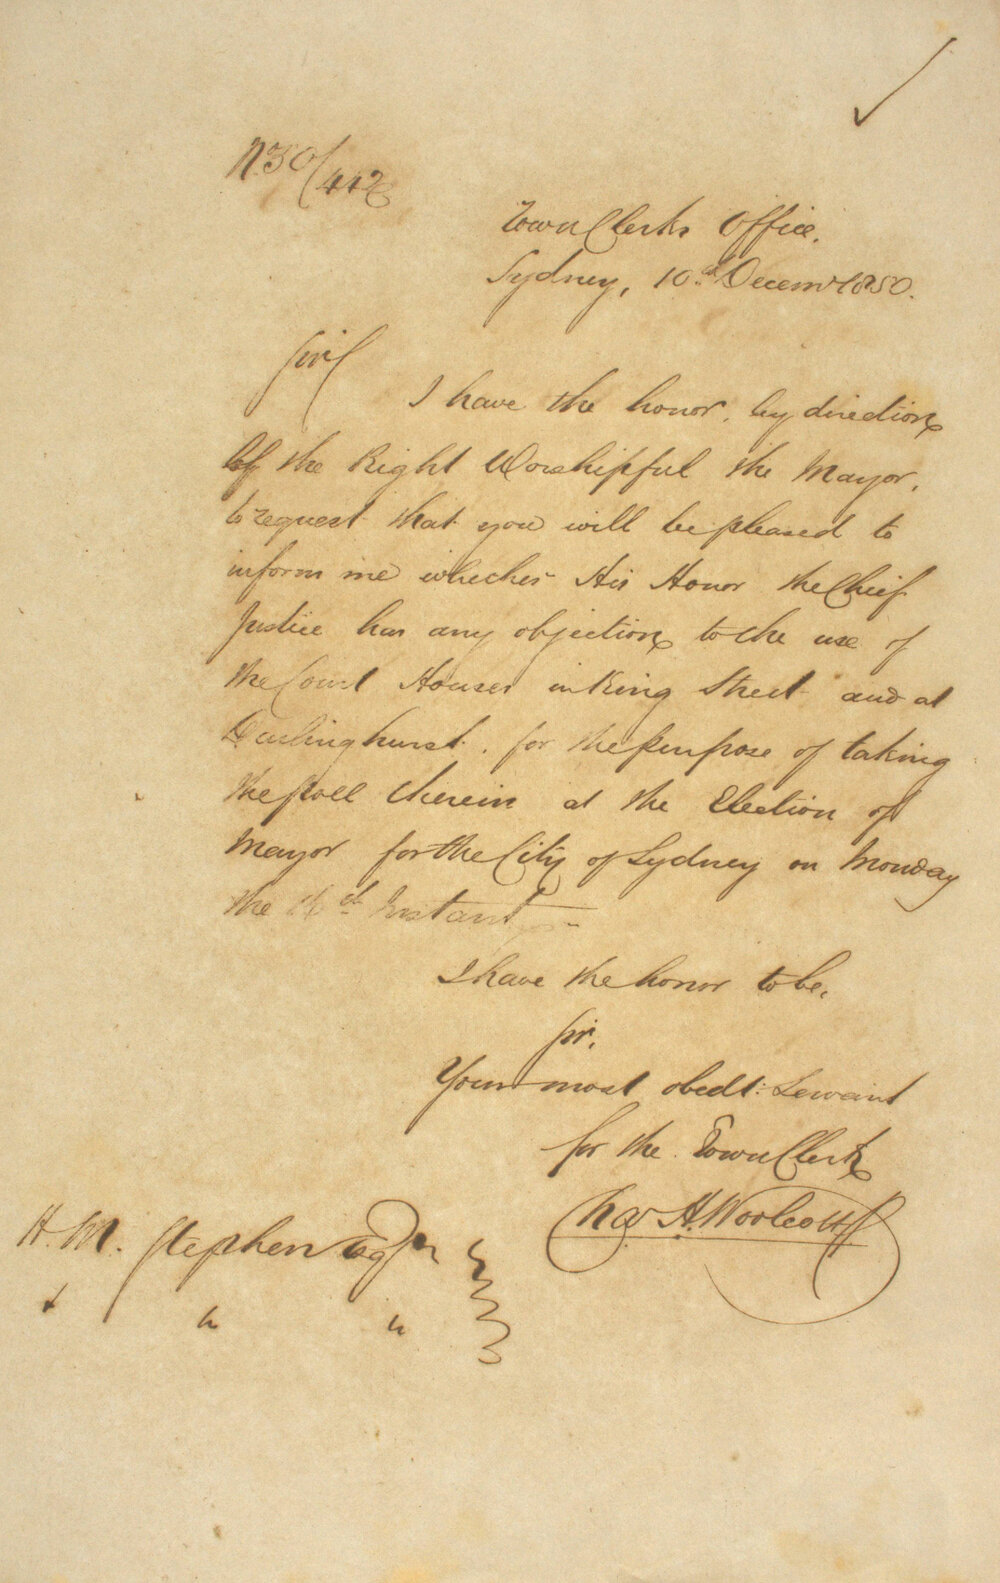 N. 50/442
Town Clerks Office,
Sydney, 10th Decemr 1850.
Sir,
I have the honor, by direction
of the Right Worshipful the Mayor,
to request that you will be pleased to
inform me whether His Honor the Chief
Justice has any objection to the use of
the Court Houses in King Street and at
Darlinghurst, for the purpose of taking
the poll therein at the Election of
Mayor for the City of Sydney on Monday
the 16th Instant
I have the honor to be,
Sir,
Your most obedt: Servant
for the Town Clerk
Chas H. Woolcott
H. M. Stephen Esqr
" " "